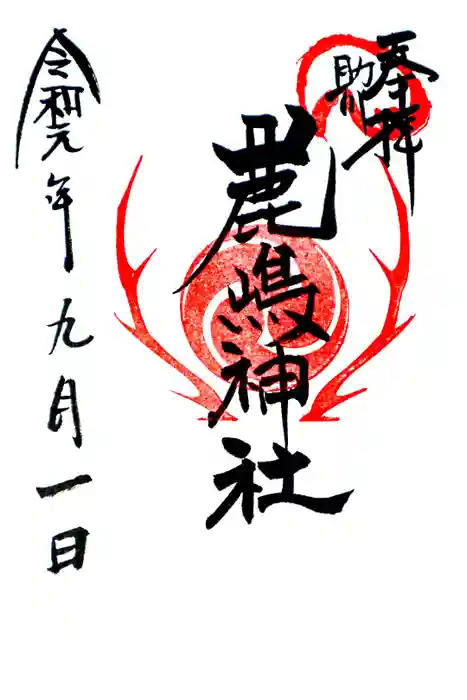 奉拝
助川
鹿嶋神社
令和元年九月一日